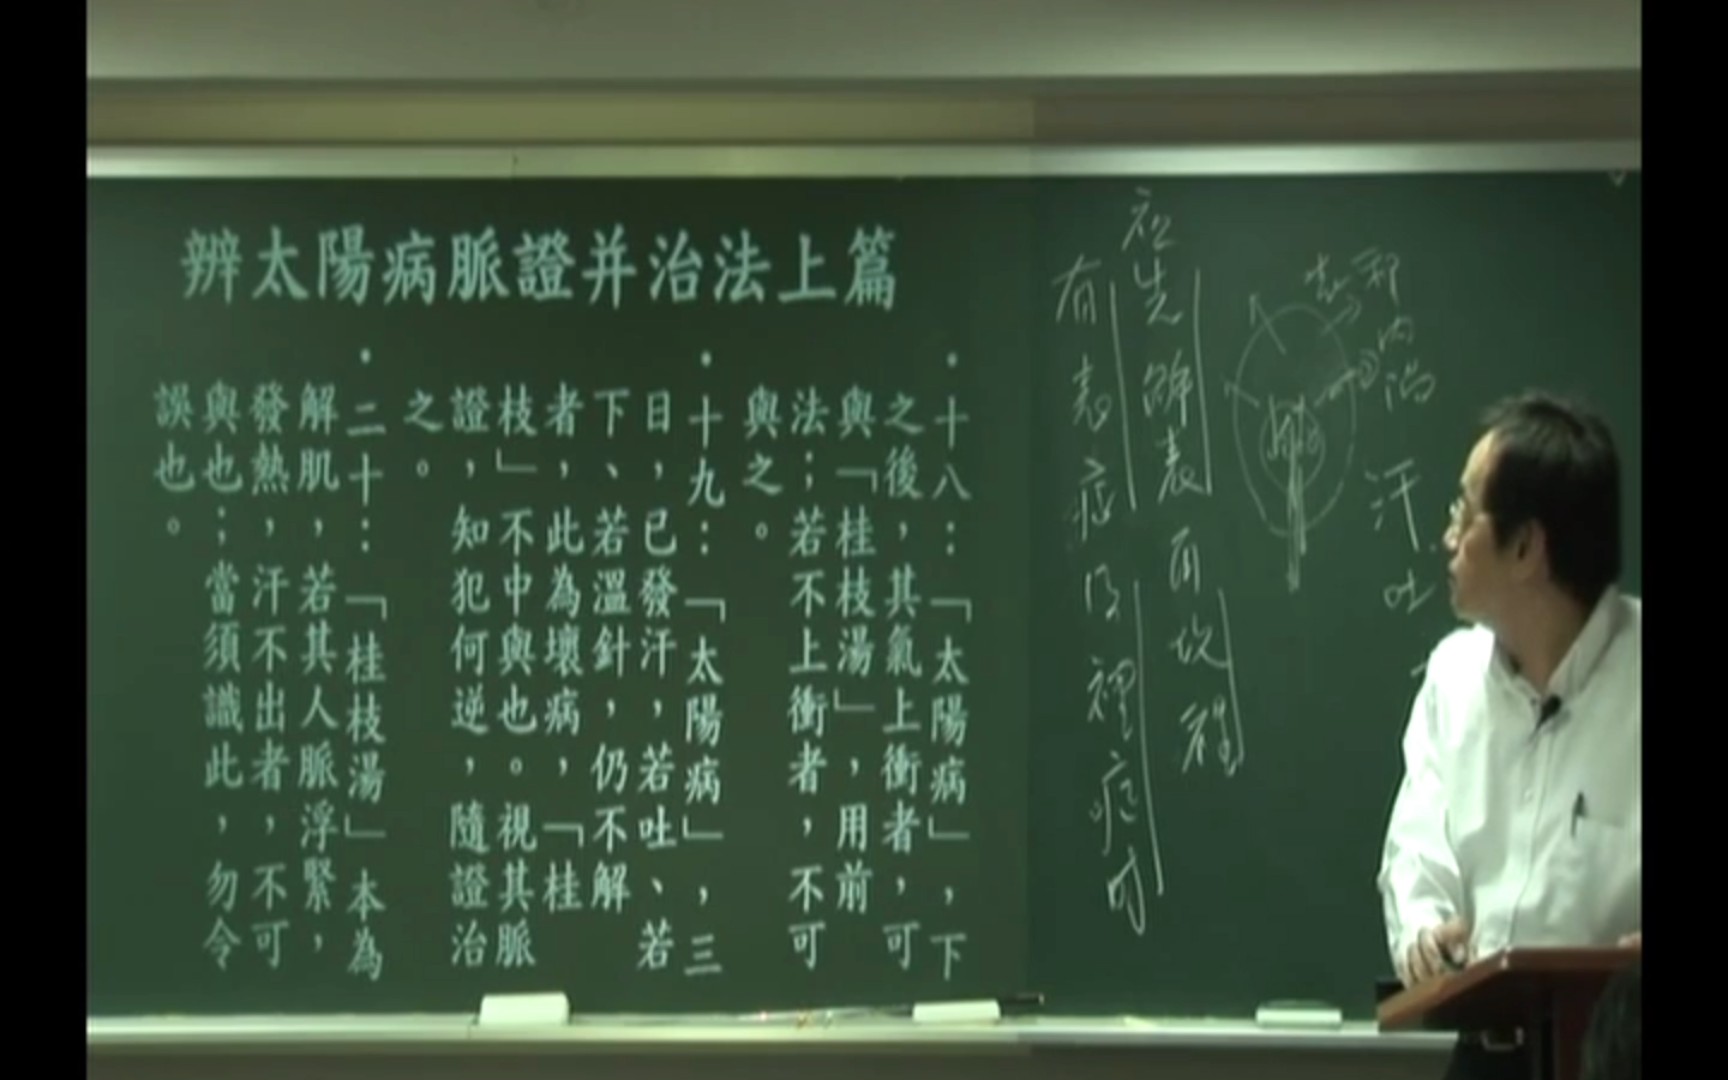 辨太陽病脈證并治法上篇
•十八：「太陽病」，下
之後，其氣上衝者，可
與「桂枝湯」，用前
法；若不上衝者，不可
與之。
•十九：「太陽病」，三
日，已發汗，若吐、若
下、若溫針，仍不解
者，此為壞病，「桂
枝」不中與也。視其脈
證，知犯何逆，隨證治
之。
•二十：「桂枝湯」本為
解肌，若其人脈浮緊，
發熱，汗不出者，不可
與也；當須識此，勿令
誤也。
先解表再攻裡
有表症 裡症時
汗.吐